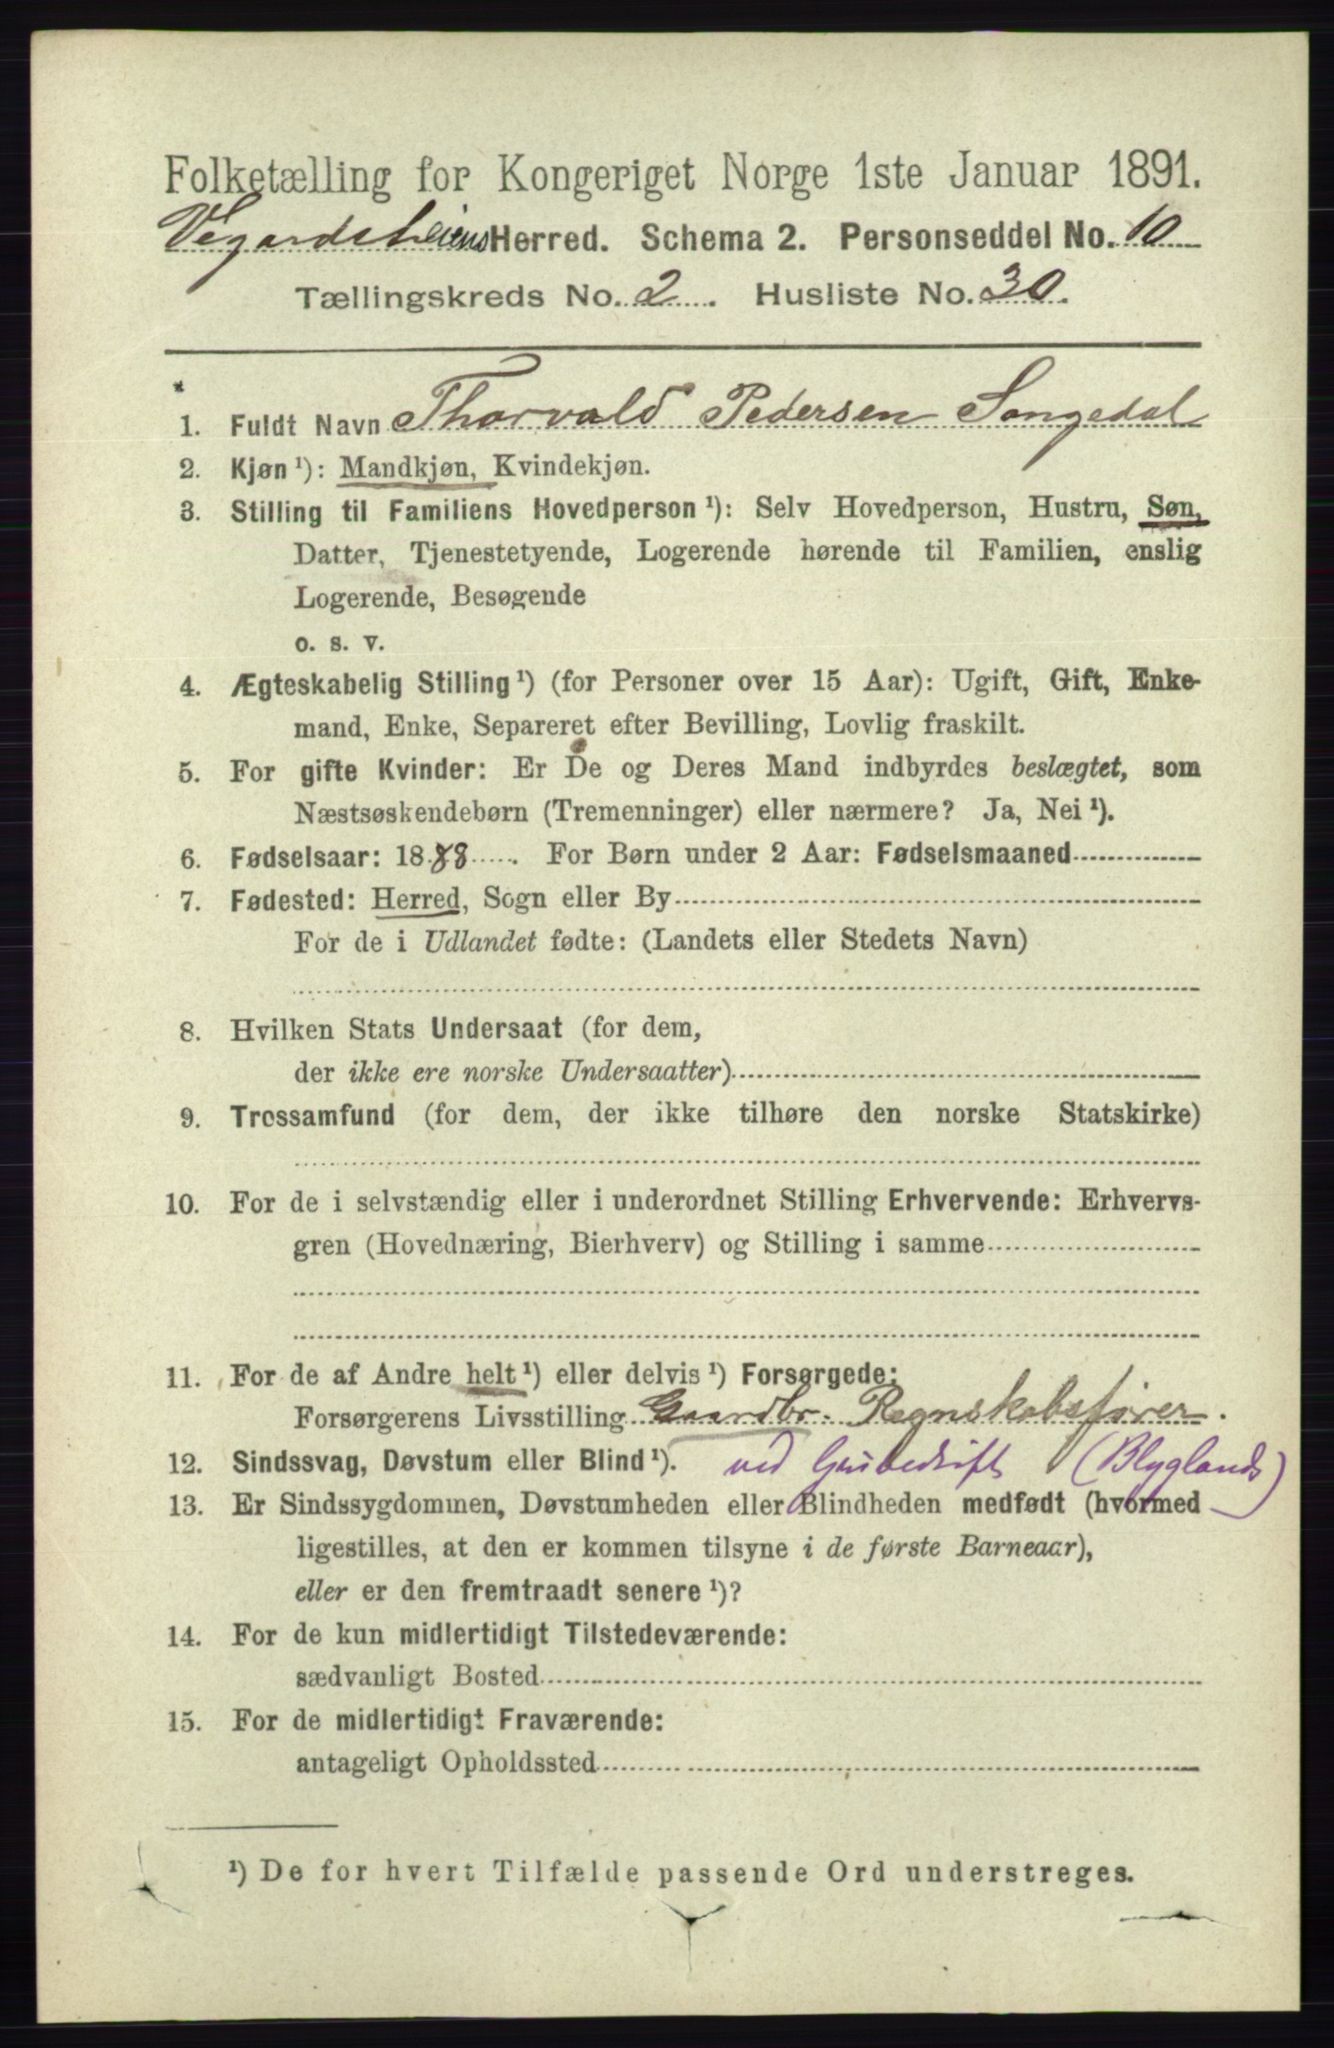 Folketælling for Kongeriget Norge 1ste Januar 1891.
Vegardsheiens Herred. Schema 2. Personseddel No. 10
Tællingskreds No. 2. Husliste No. 30.
1. Fuldt Navn Thorvald Pedersen Songedal
2. Kjøn ¹): Mandkjøn, Kvindekjøn.
3. Stilling til Familiens Hovedperson ¹): Selv Hovedperson, Hustru, Søn,
Datter, Tjenestetyende, Logerende hørende til Familien, enslig
Logerende, Besøgende
o. s. v.
4. Ægteskabelig Stilling ¹) (for Personer over 15 Aar): Ugift, Gift, Enke-
mand, Enke, Separeret efter Bevilling, Lovlig fraskilt.
5. For gifte Kvinder: Er De og Deres Mand indbyrdes beslægtet, som
Næstsøskendebørn (Tremenninger) eller nærmere? Ja, Nei ¹).
6. Fødselsaar: 1888. For Børn under 2 Aar: Fødselsmaaned
7. Fødested: Herred, Sogn eller By
For de i Udlandet fødte: (Landets eller Stedets Navn)
8. Hvilken Stats Undersaat (for dem,
der ikke ere norske Undersaatter)
9. Trossamfund (for dem, der ikke tilhøre den norske Statskirke)
10. For de i selvstændig eller i underordnet Stilling Erhvervende: Erhvervs-
gren (Hovednæring, Bierhverv) og Stilling i samme
11. For de af Andre helt ¹) eller delvis ¹) Forsørgede:
Forsørgerens Livsstilling Gaardbr. Regnskabsfører.
12. Sindssvag, Døvstum eller Blind ¹). ved Grubedrift (Blyglands)
13. Er Sindssygdommen, Døvstumheden eller Blindheden medfødt (hvormed
ligestilles, at den er kommen tilsyne i de første Barneaar),
eller er den fremtraadt senere ¹)?
14. For de kun midlertidigt Tilstedeværende:
sædvanligt Bosted
15. For de midlertidigt Fraværende:
antageligt Opholdssted
¹) De for hvert Tilfælde passende Ord understreges.